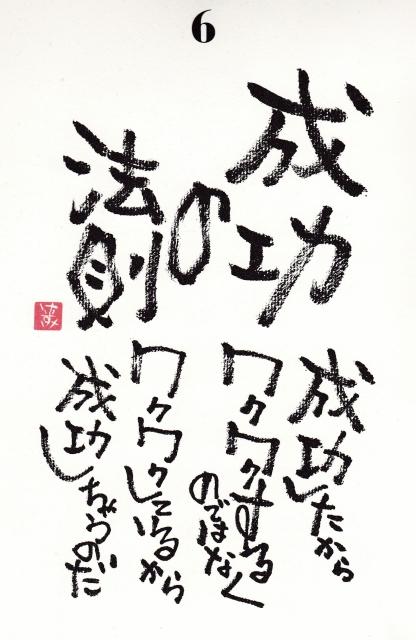 6
成功
の
法則
成功したから
ワクワクする
のではなく
ワクワクしているから
成功しちゃうのだ